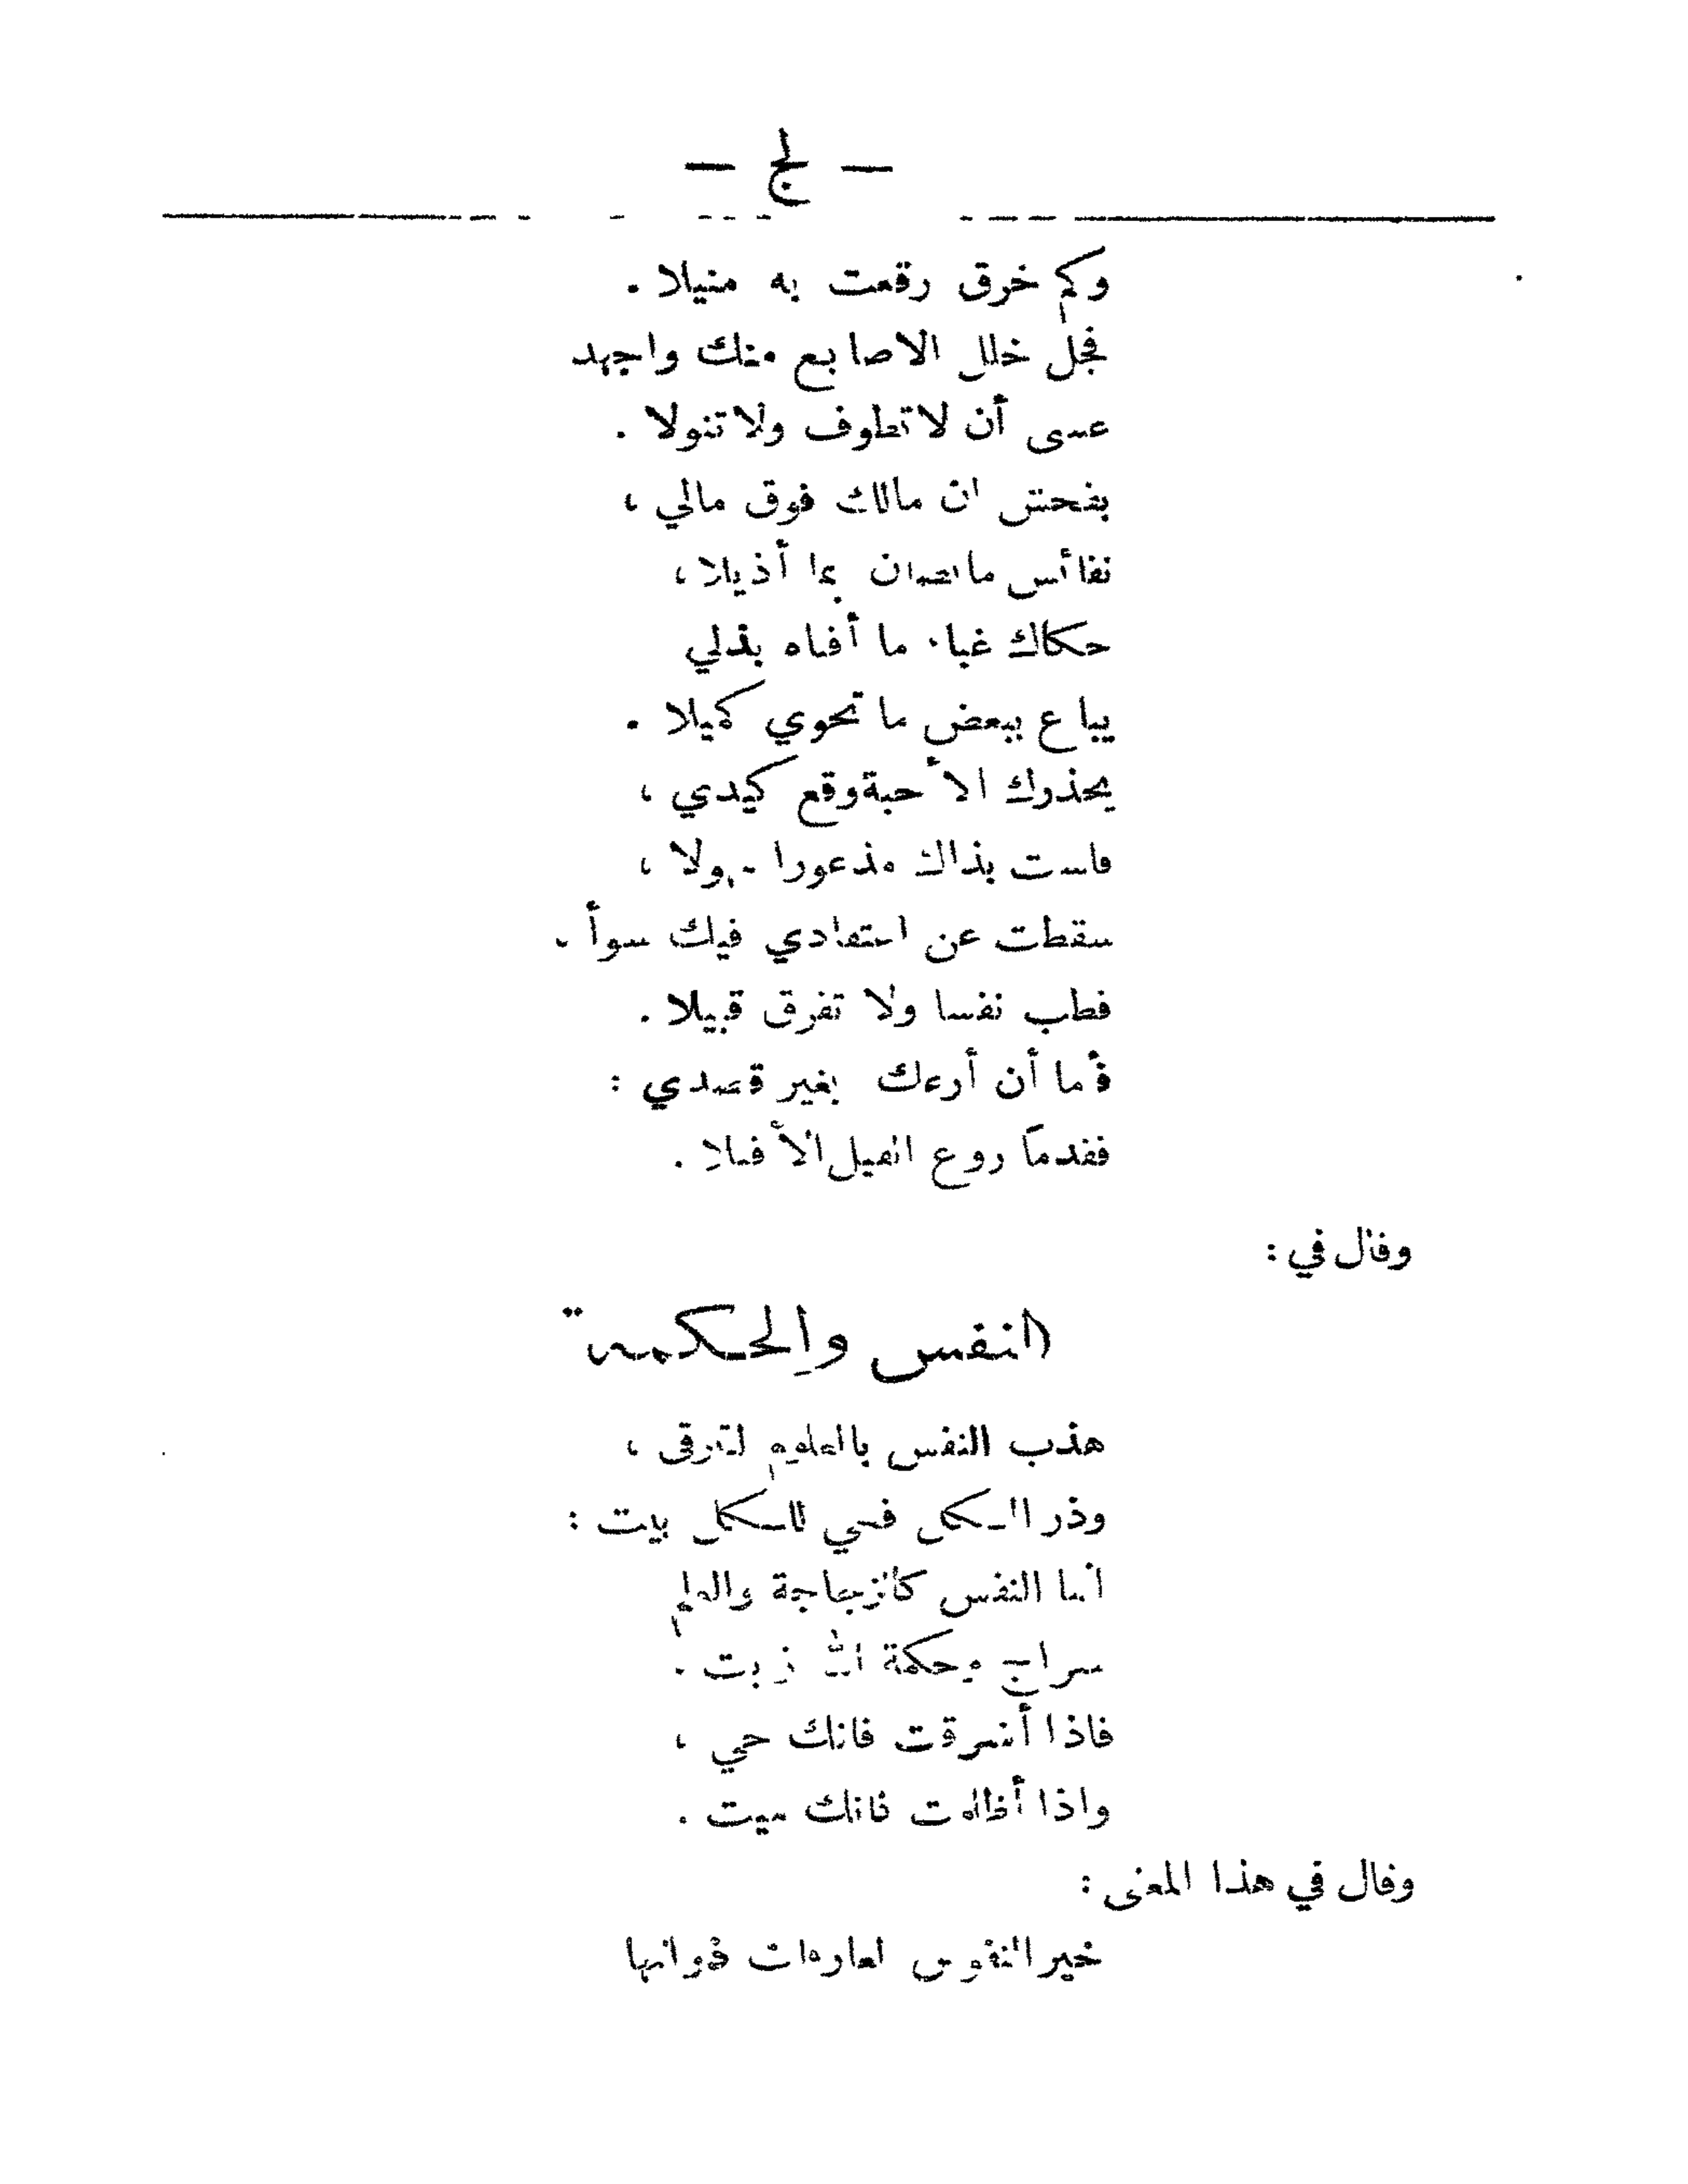 — لج —
وكم خرق رقعت به منيلا .
فجل خلل الاصابع منك واجهد
عسى أن لا تطوف ولا تنولا .
بفحش ان مالك فوق مالي ،
نفائس ما تصان بما أذيلا ،
حكاك غباء ما أفناه بذلي
يباع ببعض ما تحوي كميلا .
يحذرك الأحبة وقع كيدي ،
فلست بذاك مذعورا ولا ،
سقطت عن اعتقادي فيك سوأ .
فطب نفسا ولا تفرق قبيلا .
فأما أن أرعك بغير قصدي :
فقدما روع الفيل الأفلا .
وقال في :
النفس والحكمة
هذب النفس بالعلوم لترقى ،
وذر الكل فهي للكل بيت :
انما النفس كالزجاجة والعلم
سراج وحكمة الله زيت .
فاذا أشرقت فانك حي ،
واذا أظلمت فانك ميت .
وقال في هذا المعنى :
خير النفوس العارفات ذواتها